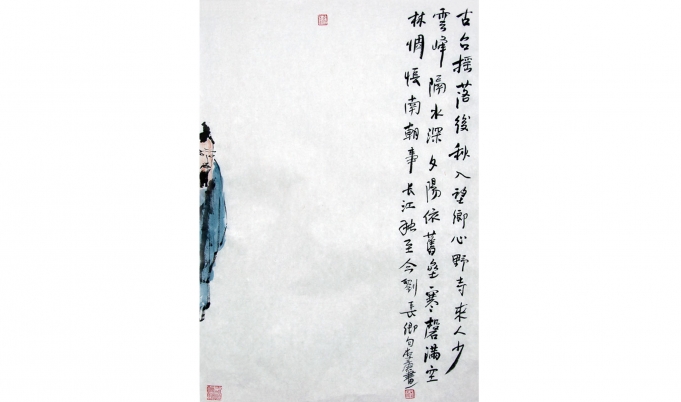 古台摇落後秋入望鄉心野寺來人少
雲峰隔水深夕陽依舊壘寒磬滿空
林惆悵南朝事长江独至今劉長卿句